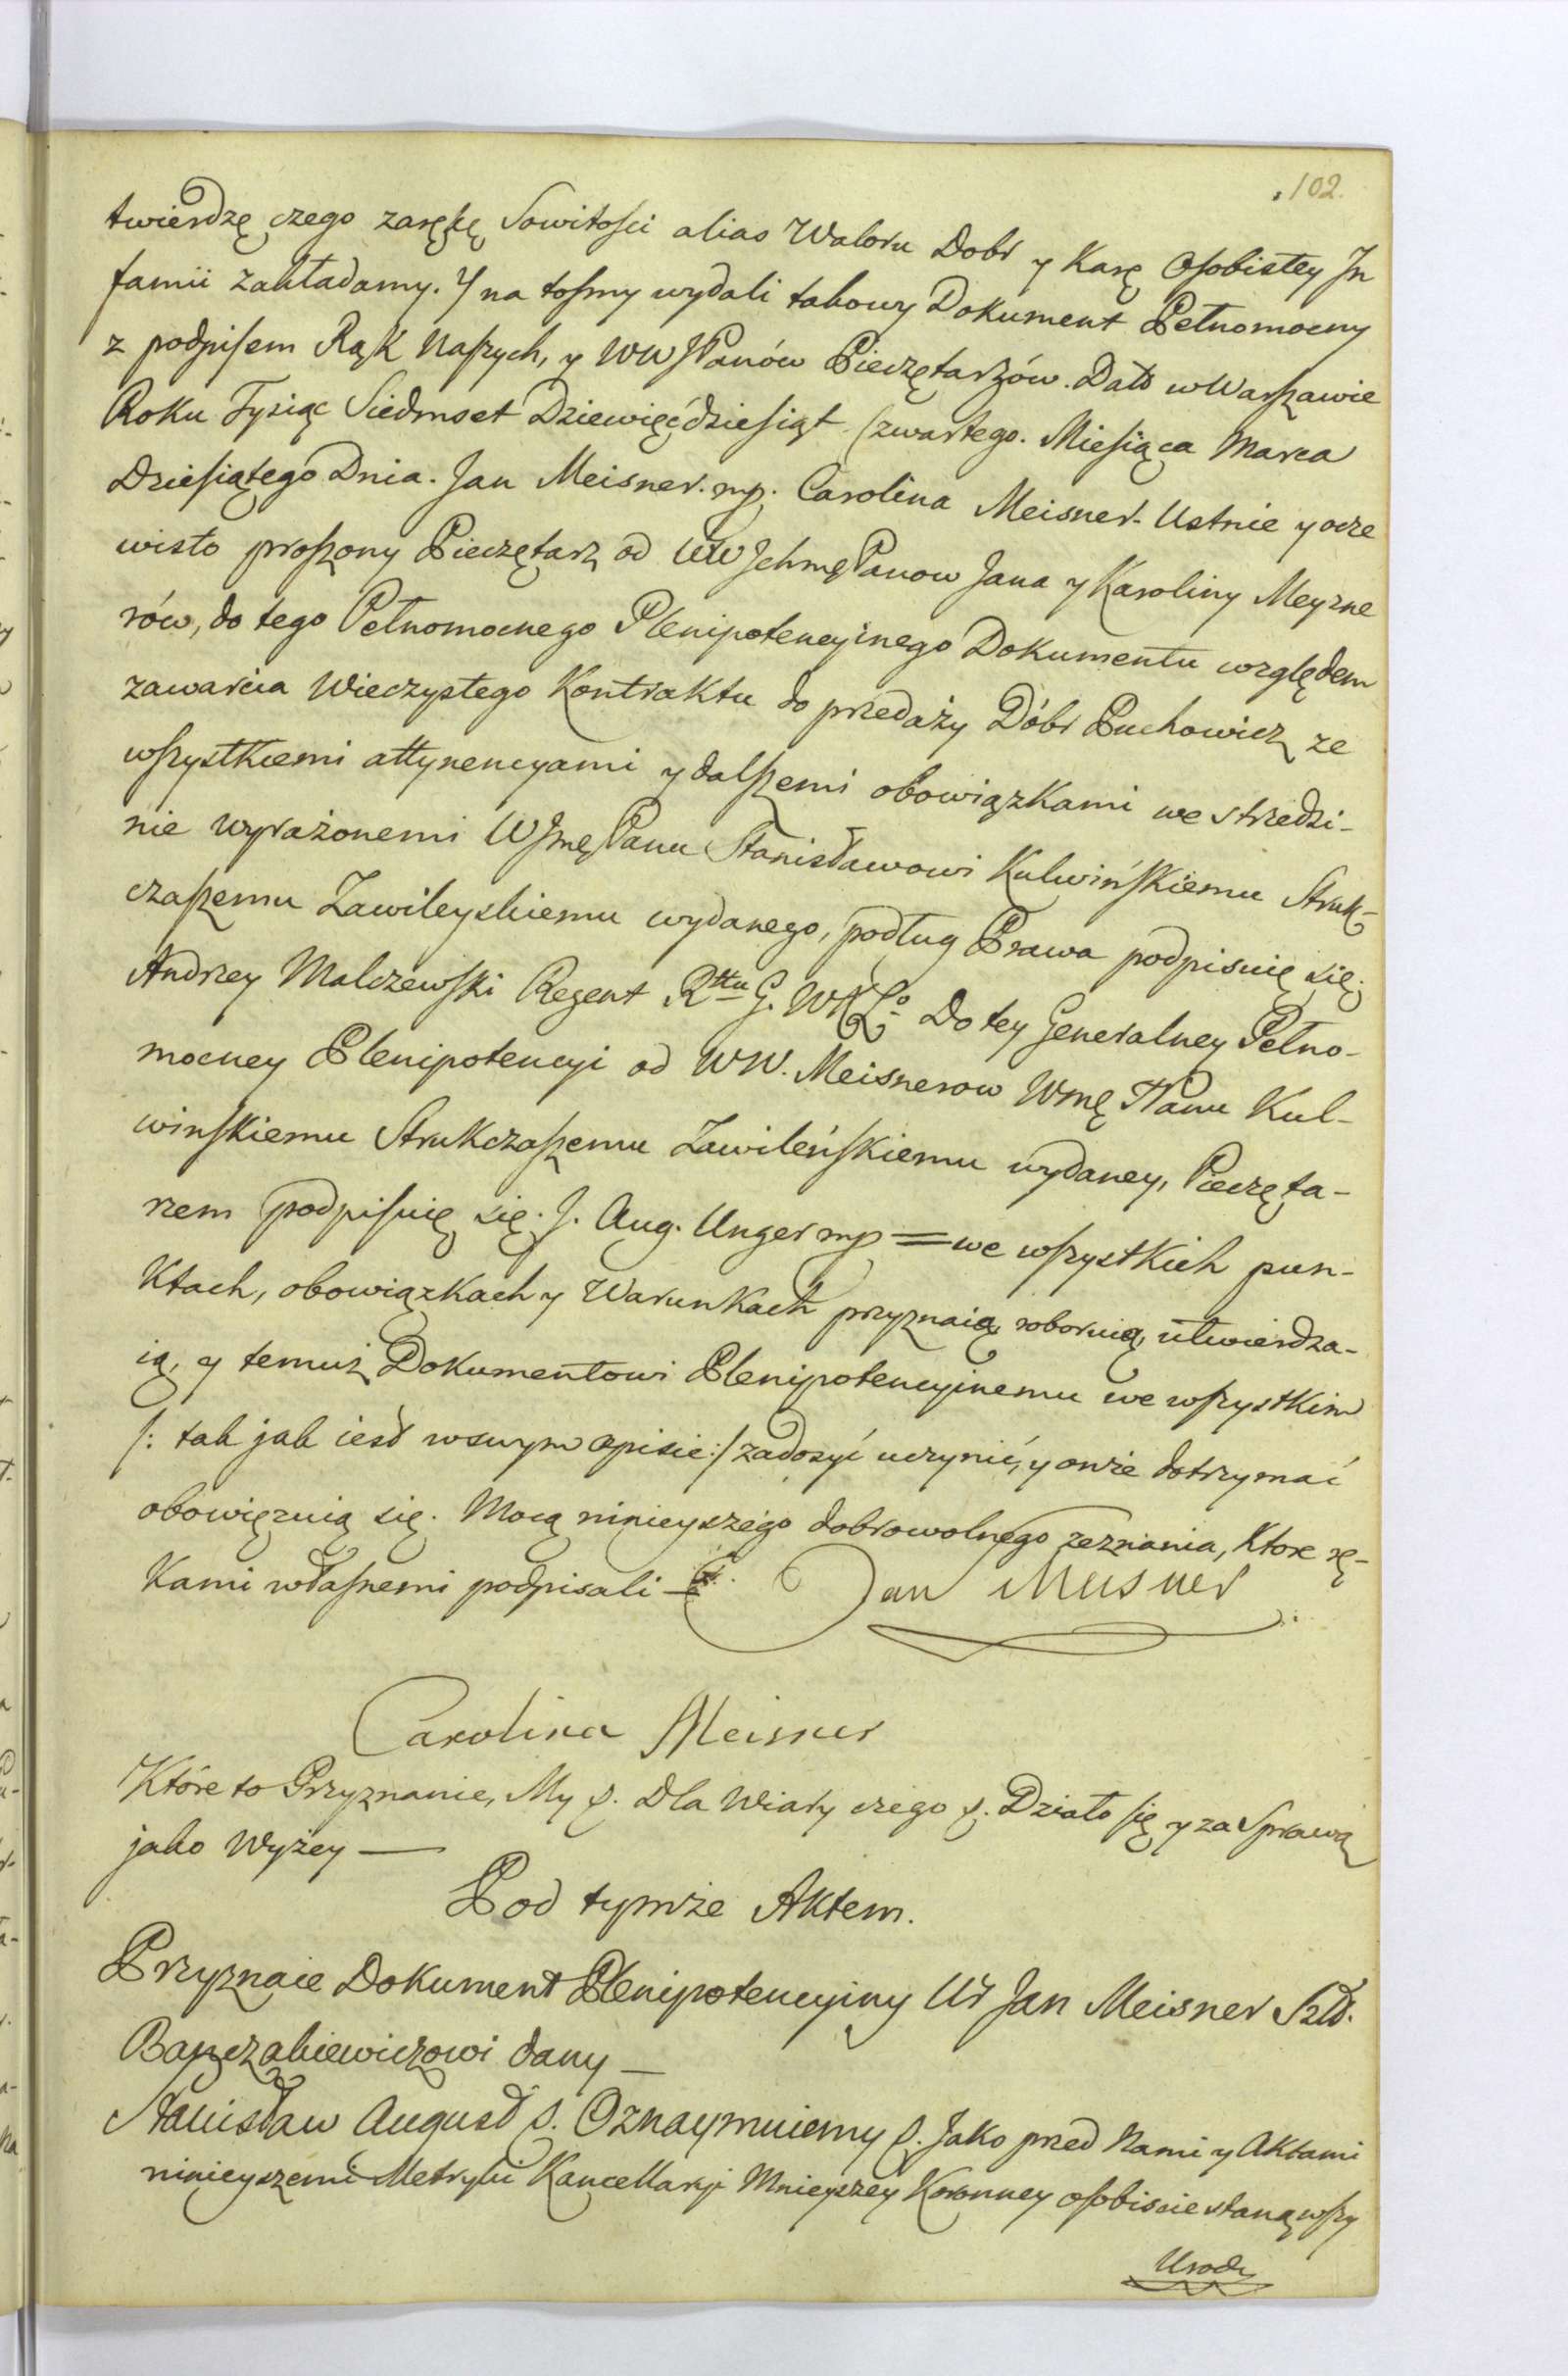 102.
twierdzę czego zarękę Sowitości alias Waloru Dobr y Karę Osobistey In
famii zakładamy. Y na tośmy wydali takowy Dokument Pełnomocny
z podpisem Rąk Naszych, y WW JPanów Pieczętarzów. Datt w Warszawie
Roku Tysiąc Siedmset Dziewięćdziesiąt Czwartego. Miesiąca Marca
Dziesiątego Dnia. Jan Meisner. mp. Carolina Meisner. Ustnie y ocze
wisto proszony Pieczętarz od WW Jchmę Panow Jana y Karoliny Meyzne
rów, do tego Pełnomocnego Plenipotencyinego Dokumentu względem
zawarcia Wieczystego Kontraktu do przedaży Dóbr Puchowicz ze
wszystkiemi attynencyami y dalszemi obowiązkami we strzedzi-
nie wyrażonemi WJmę Panu Stanisławowi Kulwińskiemu Struk-
czaszemu Zawileyskiemu wydanego, podług Prawa podpisuię się.
Andrzey Malczewski Regent Rttu G. WXLo Do tey Generalney Pełno-
mocney Plenipotencyi od WW. Meisnerow Wmę Panu Kul-
winskiemu Strukczaszemu Zawileńskiemu wydaney, Pieczęta-
rzem podpisuię się. J. Aug. Unger mp = we wszystkich pun-
ktach, obowiązkach y Warunkach przyznaią, roboruią, utwierdza-
ią, y temuż Dokumentowi Plenipotencyinemu we wszystkim
/: tak jak iest w swym opisie :/ zadosyć uczynić, y onże dotrzymać
obowięzuią się. Mocą ninieyszego dobrowolnego zeznania, ktore rę-
kami własnemi podpisali
Jan Meisner
Carolina Meisner
Które to Przyznanie, My p. Dla Wiary czego p. Działo się y za Sprawą
jako Wyżey —
Pod tymże Aktem.
Przyznaie Dokument Plenipotencyiny Ur Jan Meisner Szld.
dany —
Stanisław August p. Oznaymuiemy p. Jako przed Nami y Aktami
ninieyszemi Metryki Kancellaryi Mnieyszey Koronney osobiscie stanąwszy
Urodz